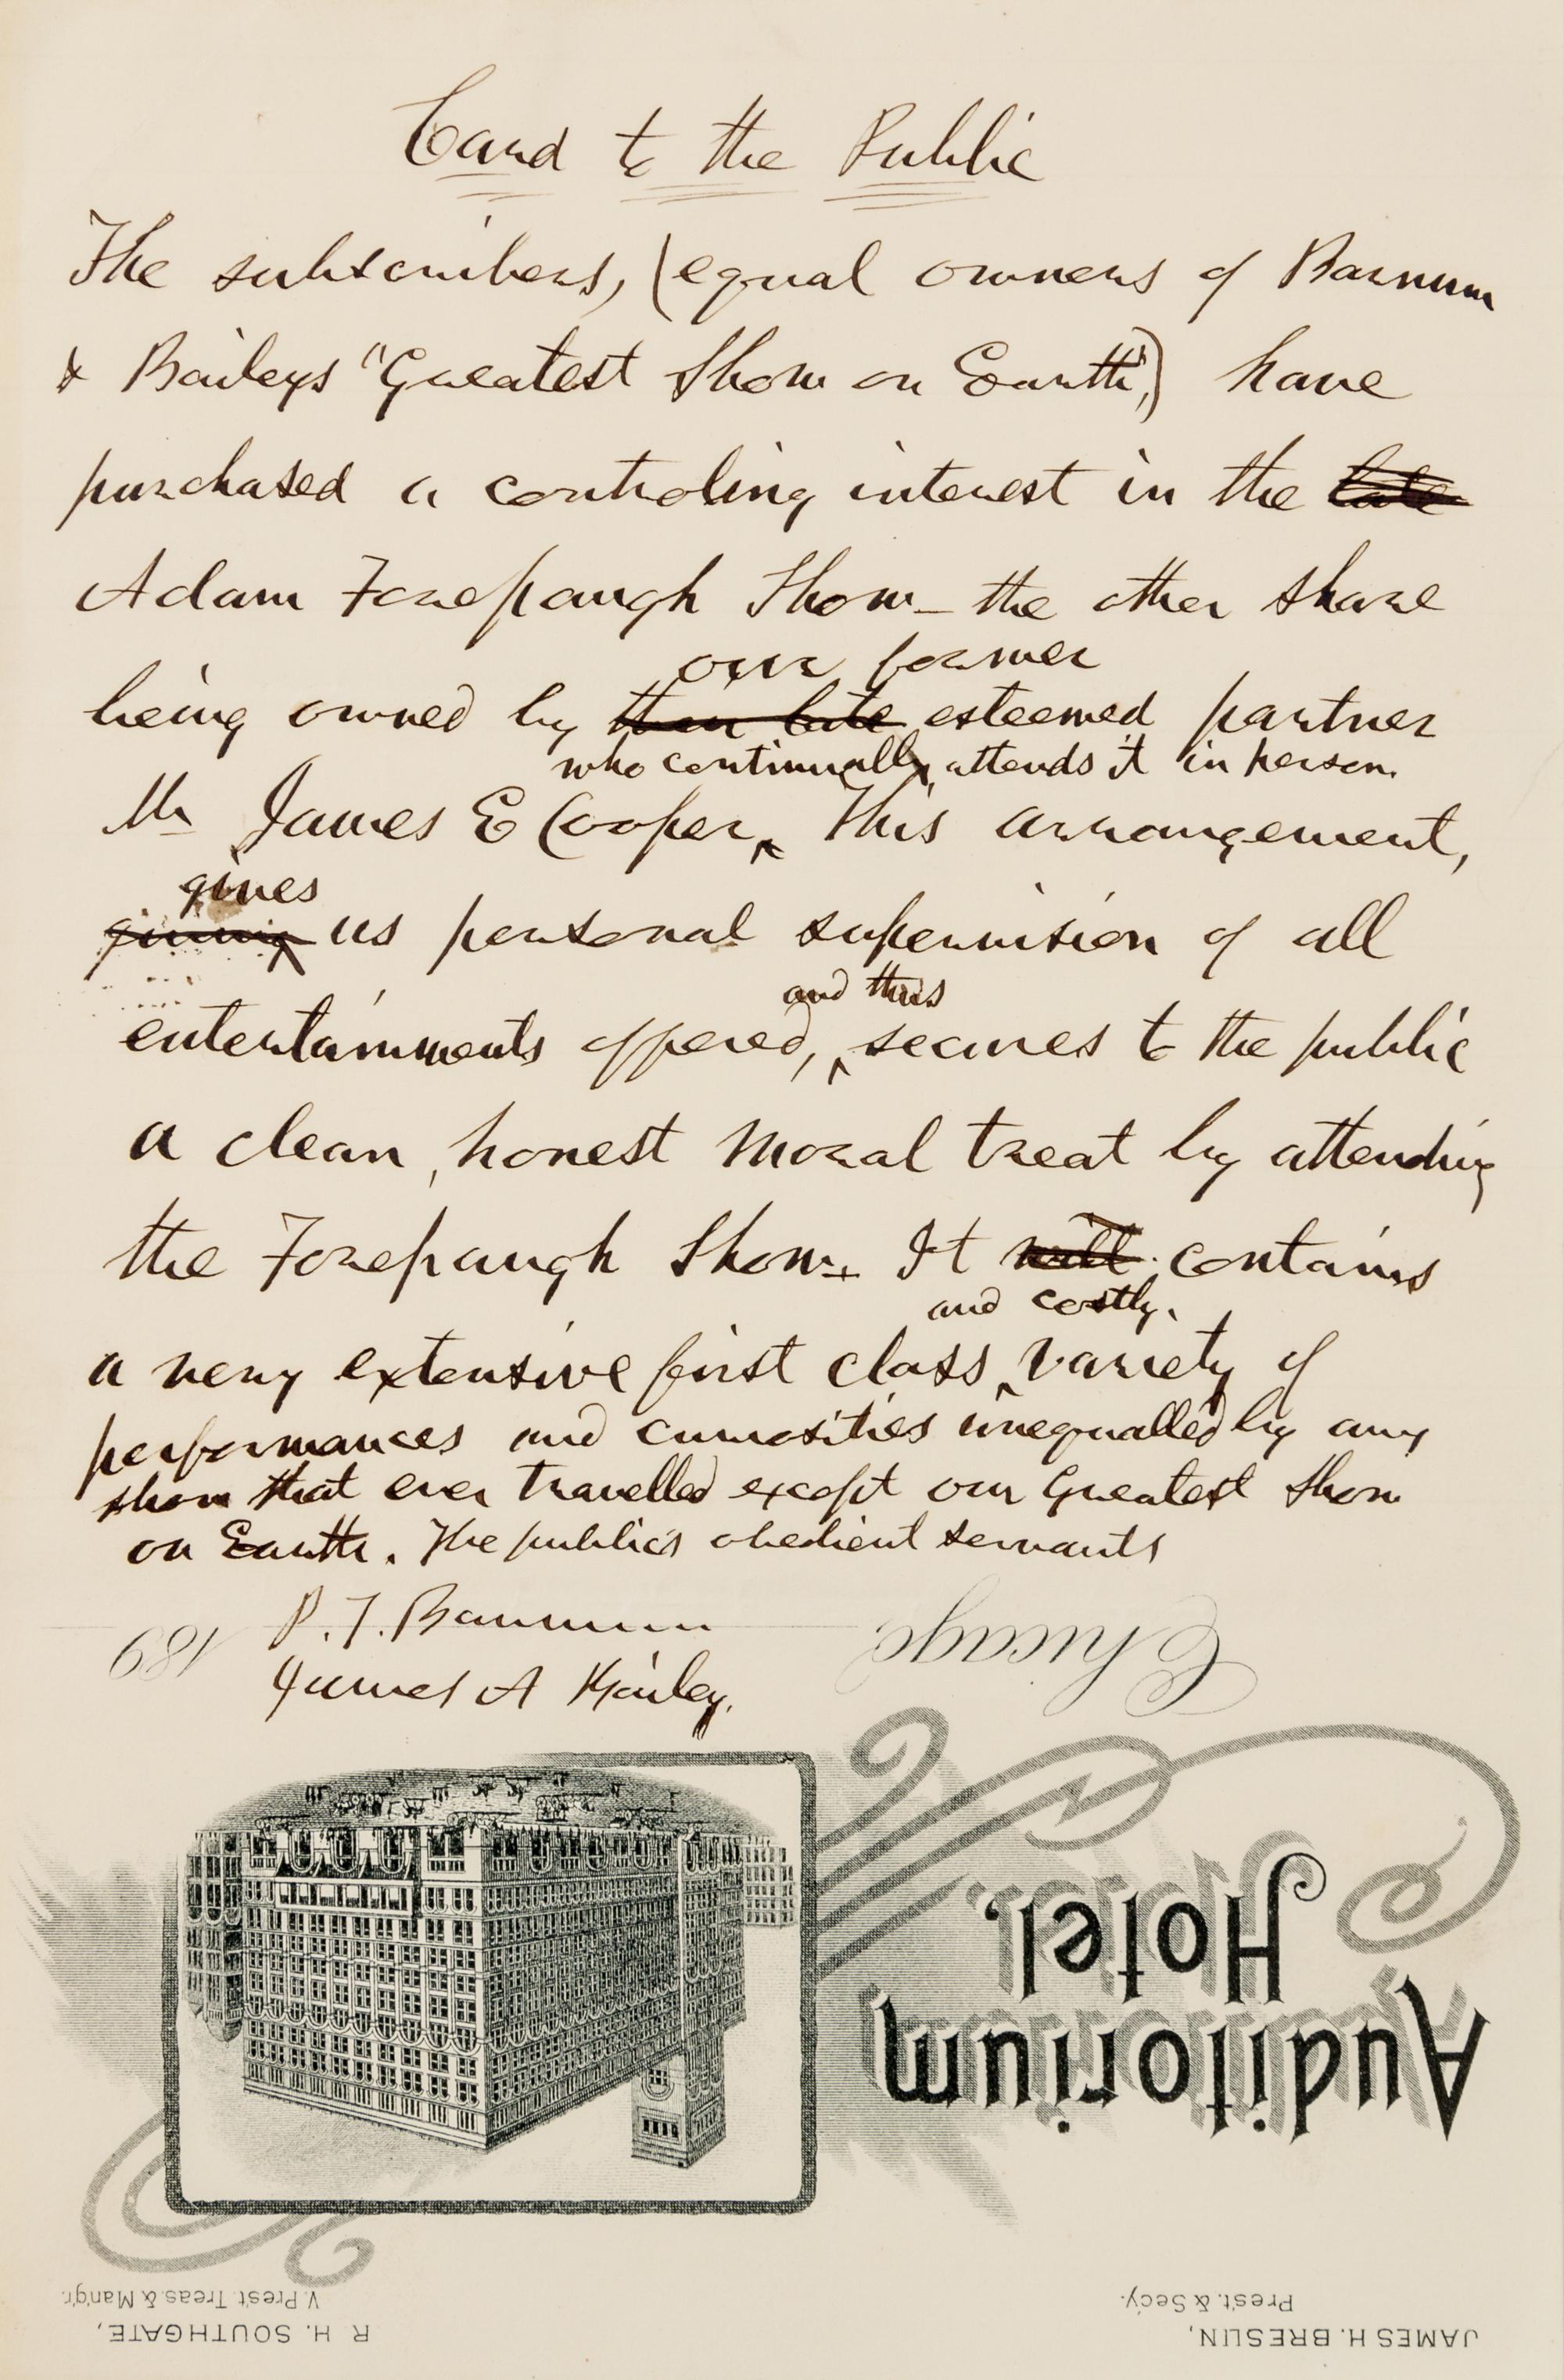 Card to the Public
The subscribers, (equal owners of Barnum
& Baileys "Greatest Show on Earth",) have
purchased a controling interest in the late
Adam Forepaugh Show - the other share
our former
being owned by their late esteemed partner
who continually attends it in person.
Mr James E Cooper, This arrangement,
gives
giving us personal supervision of all
and thus
entertainments offered, secures to the public
a clean, honest moral treat by attending
the Forepaugh Show. It will contains
and costly.
a very extensive first class variety of
performances and curiosities unequalled by any
show that ever travelled except our Greatest Show
on Earth. The public's obedient servants
P. T. Barnum
James A Bailey.
Chicago 189
Auditorium
Hotel.
JAMES H. BRESLIN,
Prest. & Secy.
R. H. SOUTHGATE,
V. Prest. Treas. & Mang'r.